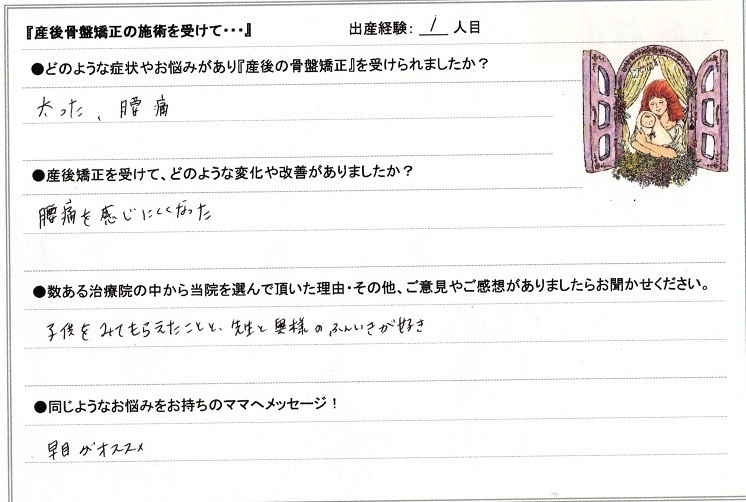 『産後骨盤矯正の施術を受けて・・・』 出産経験: 1 人目
●どのような症状やお悩みがあり『産後の骨盤矯正』を受けられましたか？
太った、腰痛
●産後矯正を受けて、どのような変化や改善がありましたか？
腰痛を感じにくくなった
●数ある治療院の中から当院を選んで頂いた理由・その他、ご意見やご感想がありましたらお聞かせください。
子供をみてもらえたことと、先生と奥様のふんいきが好き
●同じようなお悩みをお持ちのママへメッセージ！
早目がオススメ